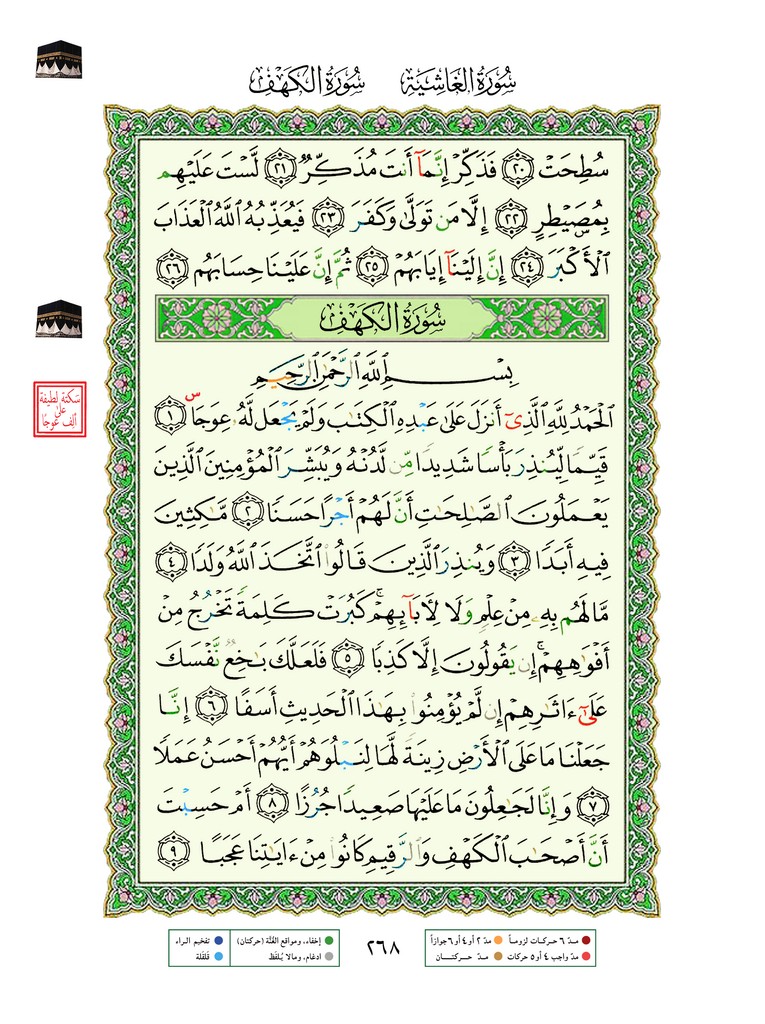 سُورَةُ الغَاشِيَة سُورَةُ الكَهْف
سُطِحَتْ ٢٠ فَذَكِّرْ إِنَّمَآ أَنتَ مُذَكِّرٌ ٢١ لَّسْتَ عَلَيْهِم
بِمُصَيْطِرٍ ٢٢ إِلَّا مَن تَوَلَّىٰ وَكَفَرَ ٢٣ فَيُعَذِّبُهُ ٱللَّهُ ٱلْعَذَابَ
ٱلْأَكْبَرَ ٢٤ إِنَّ إِلَيْنَآ إِيَابَهُمْ ٢٥ ثُمَّ إِنَّ عَلَيْنَا حِسَابَهُم ٢٦
سُورَةُ الكَهْف
بِسْمِ ٱللَّهِ ٱلرَّحْمَٰنِ ٱلرَّحِيمِ
ٱلْحَمْدُ لِلَّهِ ٱلَّذِىٓ أَنزَلَ عَلَىٰ عَبْدِهِ ٱلْكِتَٰبَ وَلَمْ يَجْعَل لَّهُۥ عِوَجَاۜ ١
قَيِّمًا لِّيُنذِرَ بَأْسًا شَدِيدًا مِّن لَّدُنْهُ وَيُبَشِّرَ ٱلْمُؤْمِنِينَ ٱلَّذِينَ
يَعْمَلُونَ ٱلصَّٰلِحَٰتِ أَنَّ لَهُمْ أَجْرًا حَسَنًا ٢ مَّٰكِثِينَ
فِيهِ أَبَدًا ٣ وَيُنذِرَ ٱلَّذِينَ قَالُوا۟ ٱتَّخَذَ ٱللَّهُ وَلَدًا ٤
مَّا لَهُم بِهِۦ مِنْ عِلْمٍ وَلَا لِأَبَآئِهِمْ ۚ كَبُرَتْ كَلِمَةً تَخْرُجُ مِنْ
أَفْوَٰهِهِمْ ۚ إِن يَقُولُونَ إِلَّا كَذِبًا ٥ فَلَعَلَّكَ بَٰخِعٌ نَّفْسَكَ
عَلَىٰٓ ءَاثَٰرِهِمْ إِن لَّمْ يُؤْمِنُوا۟ بِهَٰذَا ٱلْحَدِيثِ أَسَفًا ٦ إِنَّا
جَعَلْنَا مَا عَلَى ٱلْأَرْضِ زِينَةً لَّهَا لِنَبْلُوَهُمْ أَيُّهُمْ أَحْسَنُ عَمَلًا
٧ وَإِنَّا لَجَٰعِلُونَ مَا عَلَيْهَا صَعِيدًا جُرُزًا ٨ أَمْ حَسِبْتَ
أَنَّ أَصْحَٰبَ ٱلْكَهْفِ وَٱلرَّقِيمِ كَانُوا۟ مِنْ ءَايَٰتِنَا عَجَبًا ٩
سَكتة لطيفة
على
ألف عوجًا
مدّ ٦ حركات لزوماً مدّ ٢ أو ٤ أو ٦ جوازاً
مدّ واجب ٤ أو ٥ حركات مدّ حركتان
٢٦٨
إخفاء، ومواقع الغُنَّة (حركتان) تفخيم الراء
ادغام، ومالا يُلفَظ قلقلة